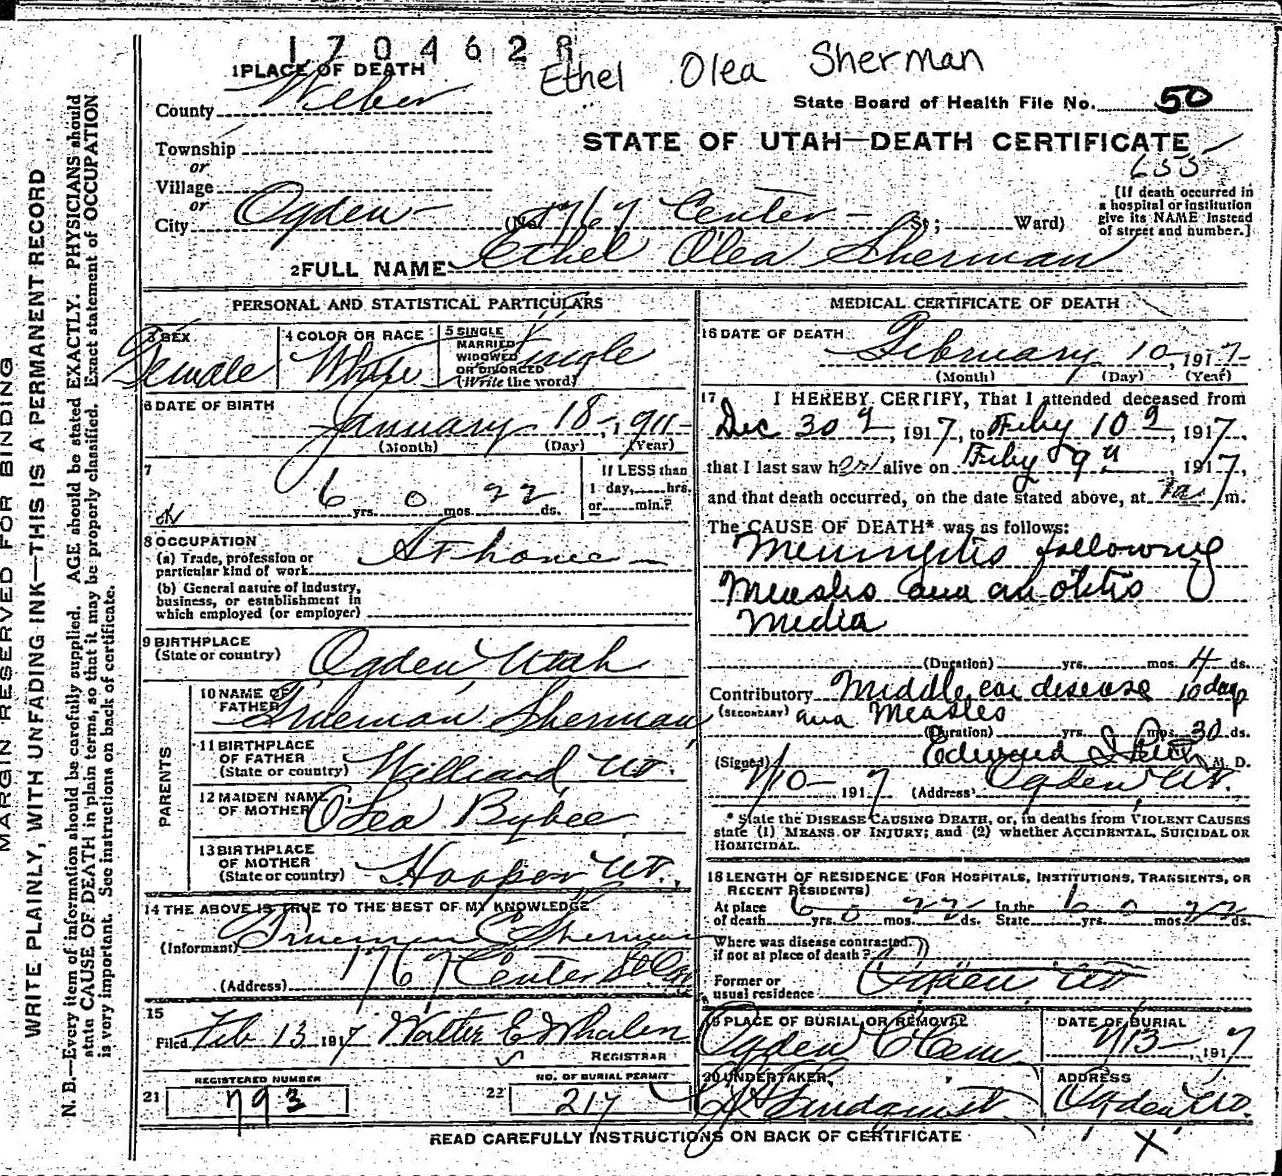 170462R
Ethel Olea Sherman
1 PLACE OF DEATH
County Weber
State Board of Health File No. 50
STATE OF UTAH—DEATH CERTIFICATE
655
Township
or
Village
or
City Ogden (No. 1767 Center St; Ward)
[If death occurred in a hospital or institution give its NAME instead of street and number.]
2 FULL NAME Ethel Olea Sherman
PERSONAL AND STATISTICAL PARTICULARS
3 SEX
Female
4 COLOR OR RACE
White
5 SINGLE
MARRIED
WIDOWED
OR DIVORCED
(Write the word)
Single
6 DATE OF BIRTH
January 18, 1911
(Month) (Day) (Year)
7
6 yrs. 0 mos. 22 ds.
If LESS than
1 day, hrs.
or min.?
8 OCCUPATION
(a) Trade, profession or
particular kind of work At home
(b) General nature of industry,
business, or establishment in
which employed (or employer)
9 BIRTHPLACE
(State or country) Ogden, Utah
PARENTS
10 NAME OF
FATHER Trueman Sherman
11 BIRTHPLACE
OF FATHER
(State or country) Williard Ut.
12 MAIDEN NAME
OF MOTHER Olea Bybee
13 BIRTHPLACE
OF MOTHER
(State or country) Hooper Ut.
14 THE ABOVE IS TRUE TO THE BEST OF MY KNOWLEDGE
(Informant) Trueman C Sherman
(Address) 1767 Center St
15
Filed Feb 13 1917 Walter E Whalen
REGISTRAR
REGISTERED NUMBER
21 793
NO. OF BURIAL PERMIT
22 217
MEDICAL CERTIFICATE OF DEATH
16 DATE OF DEATH
February 10, 1917
(Month) (Day) (Year)
17 I HEREBY CERTIFY, That I attended deceased from
Dec 30, 1917, to Feby 10, 1917,
that I last saw her alive on Feby 9, 1917,
and that death occurred, on the date stated above, at 1 a m.
The CAUSE OF DEATH* was as follows:
Meningitis following
Measles and an otitis
Media
(Duration) yrs. mos. 4 ds.
Contributory Middle ear disease 10 days
(SECONDARY) and Measles
(Duration) yrs. mos. 30 ds.
(Signed) Edward I M. D.
2/10- 1917 (Address) Ogden, Ut.
* State the DISEASE CAUSING DEATH, or, in deaths from VIOLENT CAUSES
state (1) MEANS OF INJURY; and (2) whether ACCIDENTAL, SUICIDAL OR
HOMICIDAL.
18 LENGTH OF RESIDENCE (FOR HOSPITALS, INSTITUTIONS, TRANSIENTS, OR
RECENT RESIDENTS)
At place
of death 6 yrs. 0 mos. 22 ds. In the State 6 yrs. 0 mos. 22 ds.
Where was disease contracted,
if not at place of death?
Former or
usual residence Ogden Ut
19 PLACE OF BURIAL OR REMOVAL
Ogden Cem
DATE OF BURIAL
2/13-, 1917
20 UNDERTAKER
Lindquist
ADDRESS
Ogden Ut.
READ CAREFULLY INSTRUCTIONS ON BACK OF CERTIFICATE
X
MARGIN RESERVED FOR BINDING
WRITE PLAINLY, WITH UNFADING INK—THIS IS A PERMANENT RECORD
N. B.—Every item of information should be carefully supplied. AGE should be stated EXACTLY. PHYSICIANS should
state CAUSE OF DEATH in plain terms, so that it may be properly classified. Exact statement of OCCUPATION
is very important. See instructions on back of certificate.